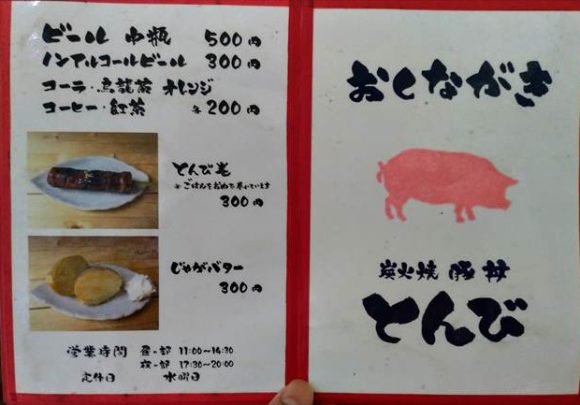 ビール 中瓶 500円
ノンアルコールビール 300円
コーラ・烏龍茶 オレンジ
コーヒー・紅茶 各200円
とんび巻
※ごはんをお肉で巻いています
300円
じゃがバター
300円
営業時間 昼の部 11:00〜14:30
夜の部 17:30〜20:00
定休日 水曜日
おしながき
炭火焼 豚丼
とんび